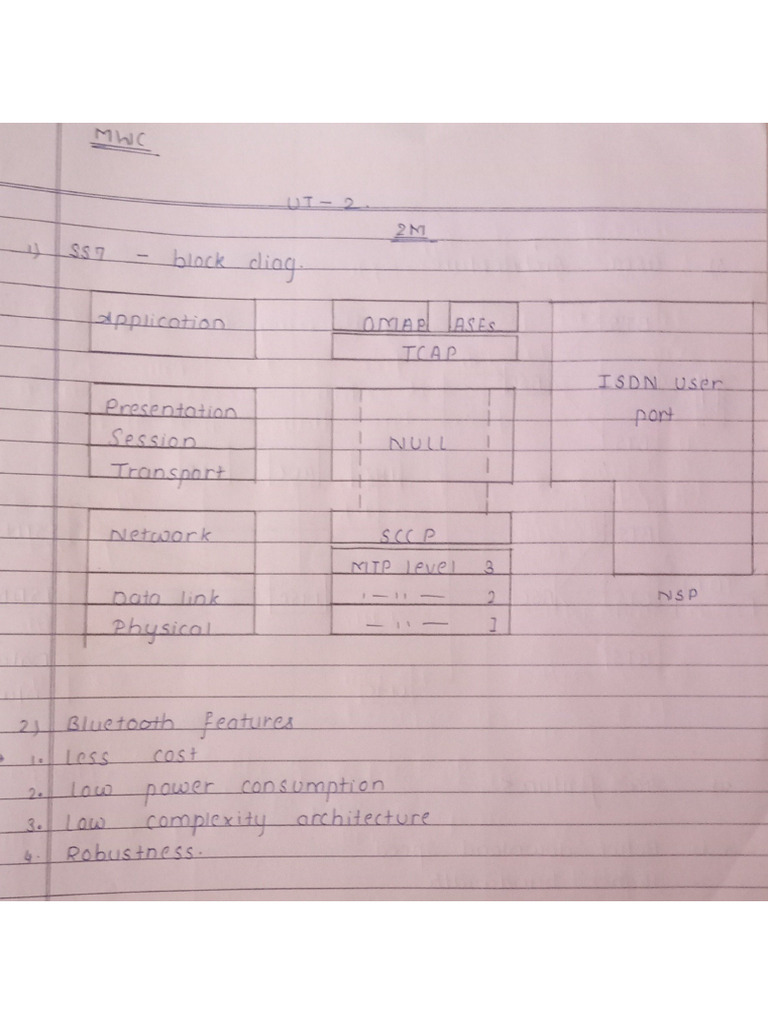 MWC
UT - 2.
2M
1) SS7 - block diag.
Application
OMAP ASEs
TCAP
ISDN User
part
Presentation
Session
Transport
NULL
Network
SCCP
MTP level 3
Data link
-"- 2
NSP
Physical
-"- 1
2) Bluetooth features
1. Less cost
2. Low power consumption
3. Low complexity architecture
4. Robustness.